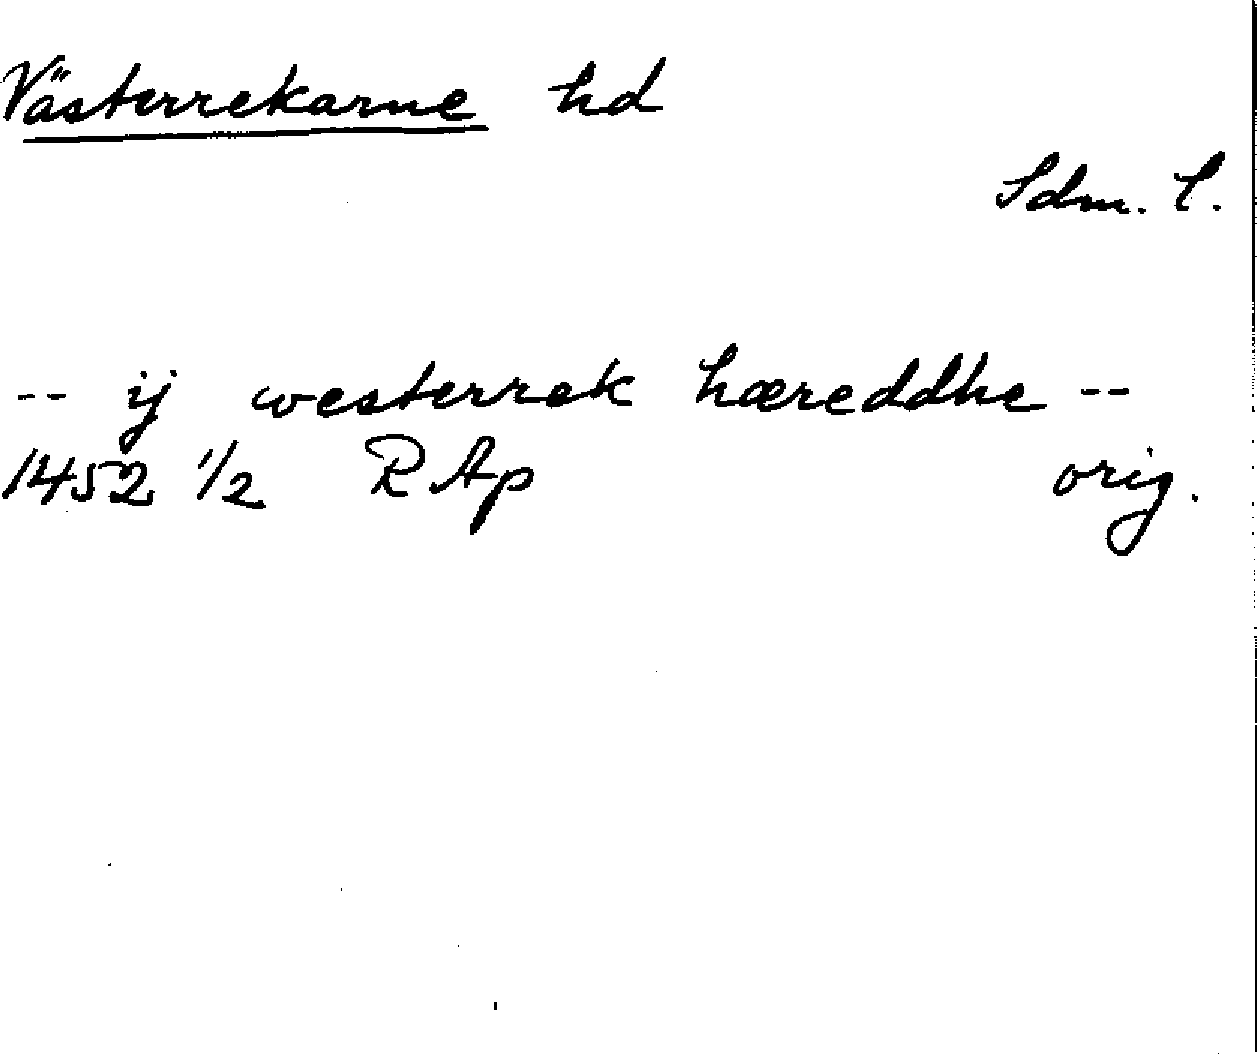 Västerrekarne hd
Sdm. l.
-- ij westerrek hæreddhe --
1452 1/2 RAp orig.